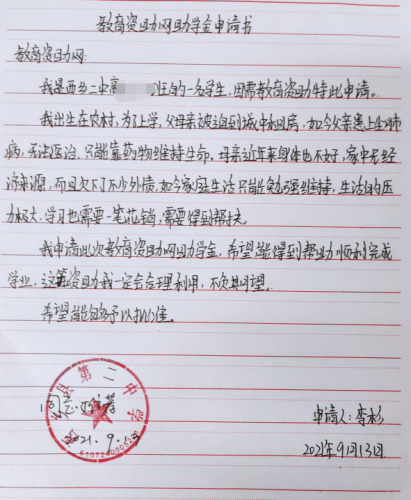 教育资助网助学金申请书
教育资助网:
我是西乡二中高 班的一名学生,因需教育资助特此申请。
我出生在农村,为了上学,父母亲被迫到城中租房,如今父亲患上尘肺
病,无法医治,只能靠药物维持生命,母亲近年来身体也不好,家中无经
济来源,而且欠下不少外债,如今家庭生活只能勉强维持,生活的压
力极大,学习也需要一笔花销,需要得到帮扶。
我申请此次教育资助网助学金,希望能得到帮助顺利完成
学业,这笔资助我一定会合理利用,不负期望。
希望能够予以批准。
县第二中学
同意
2021.9.
申请人:李杉
2021年9月13日